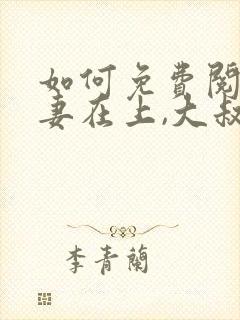 如何免費閱
妻在上,大叔
李青蘭